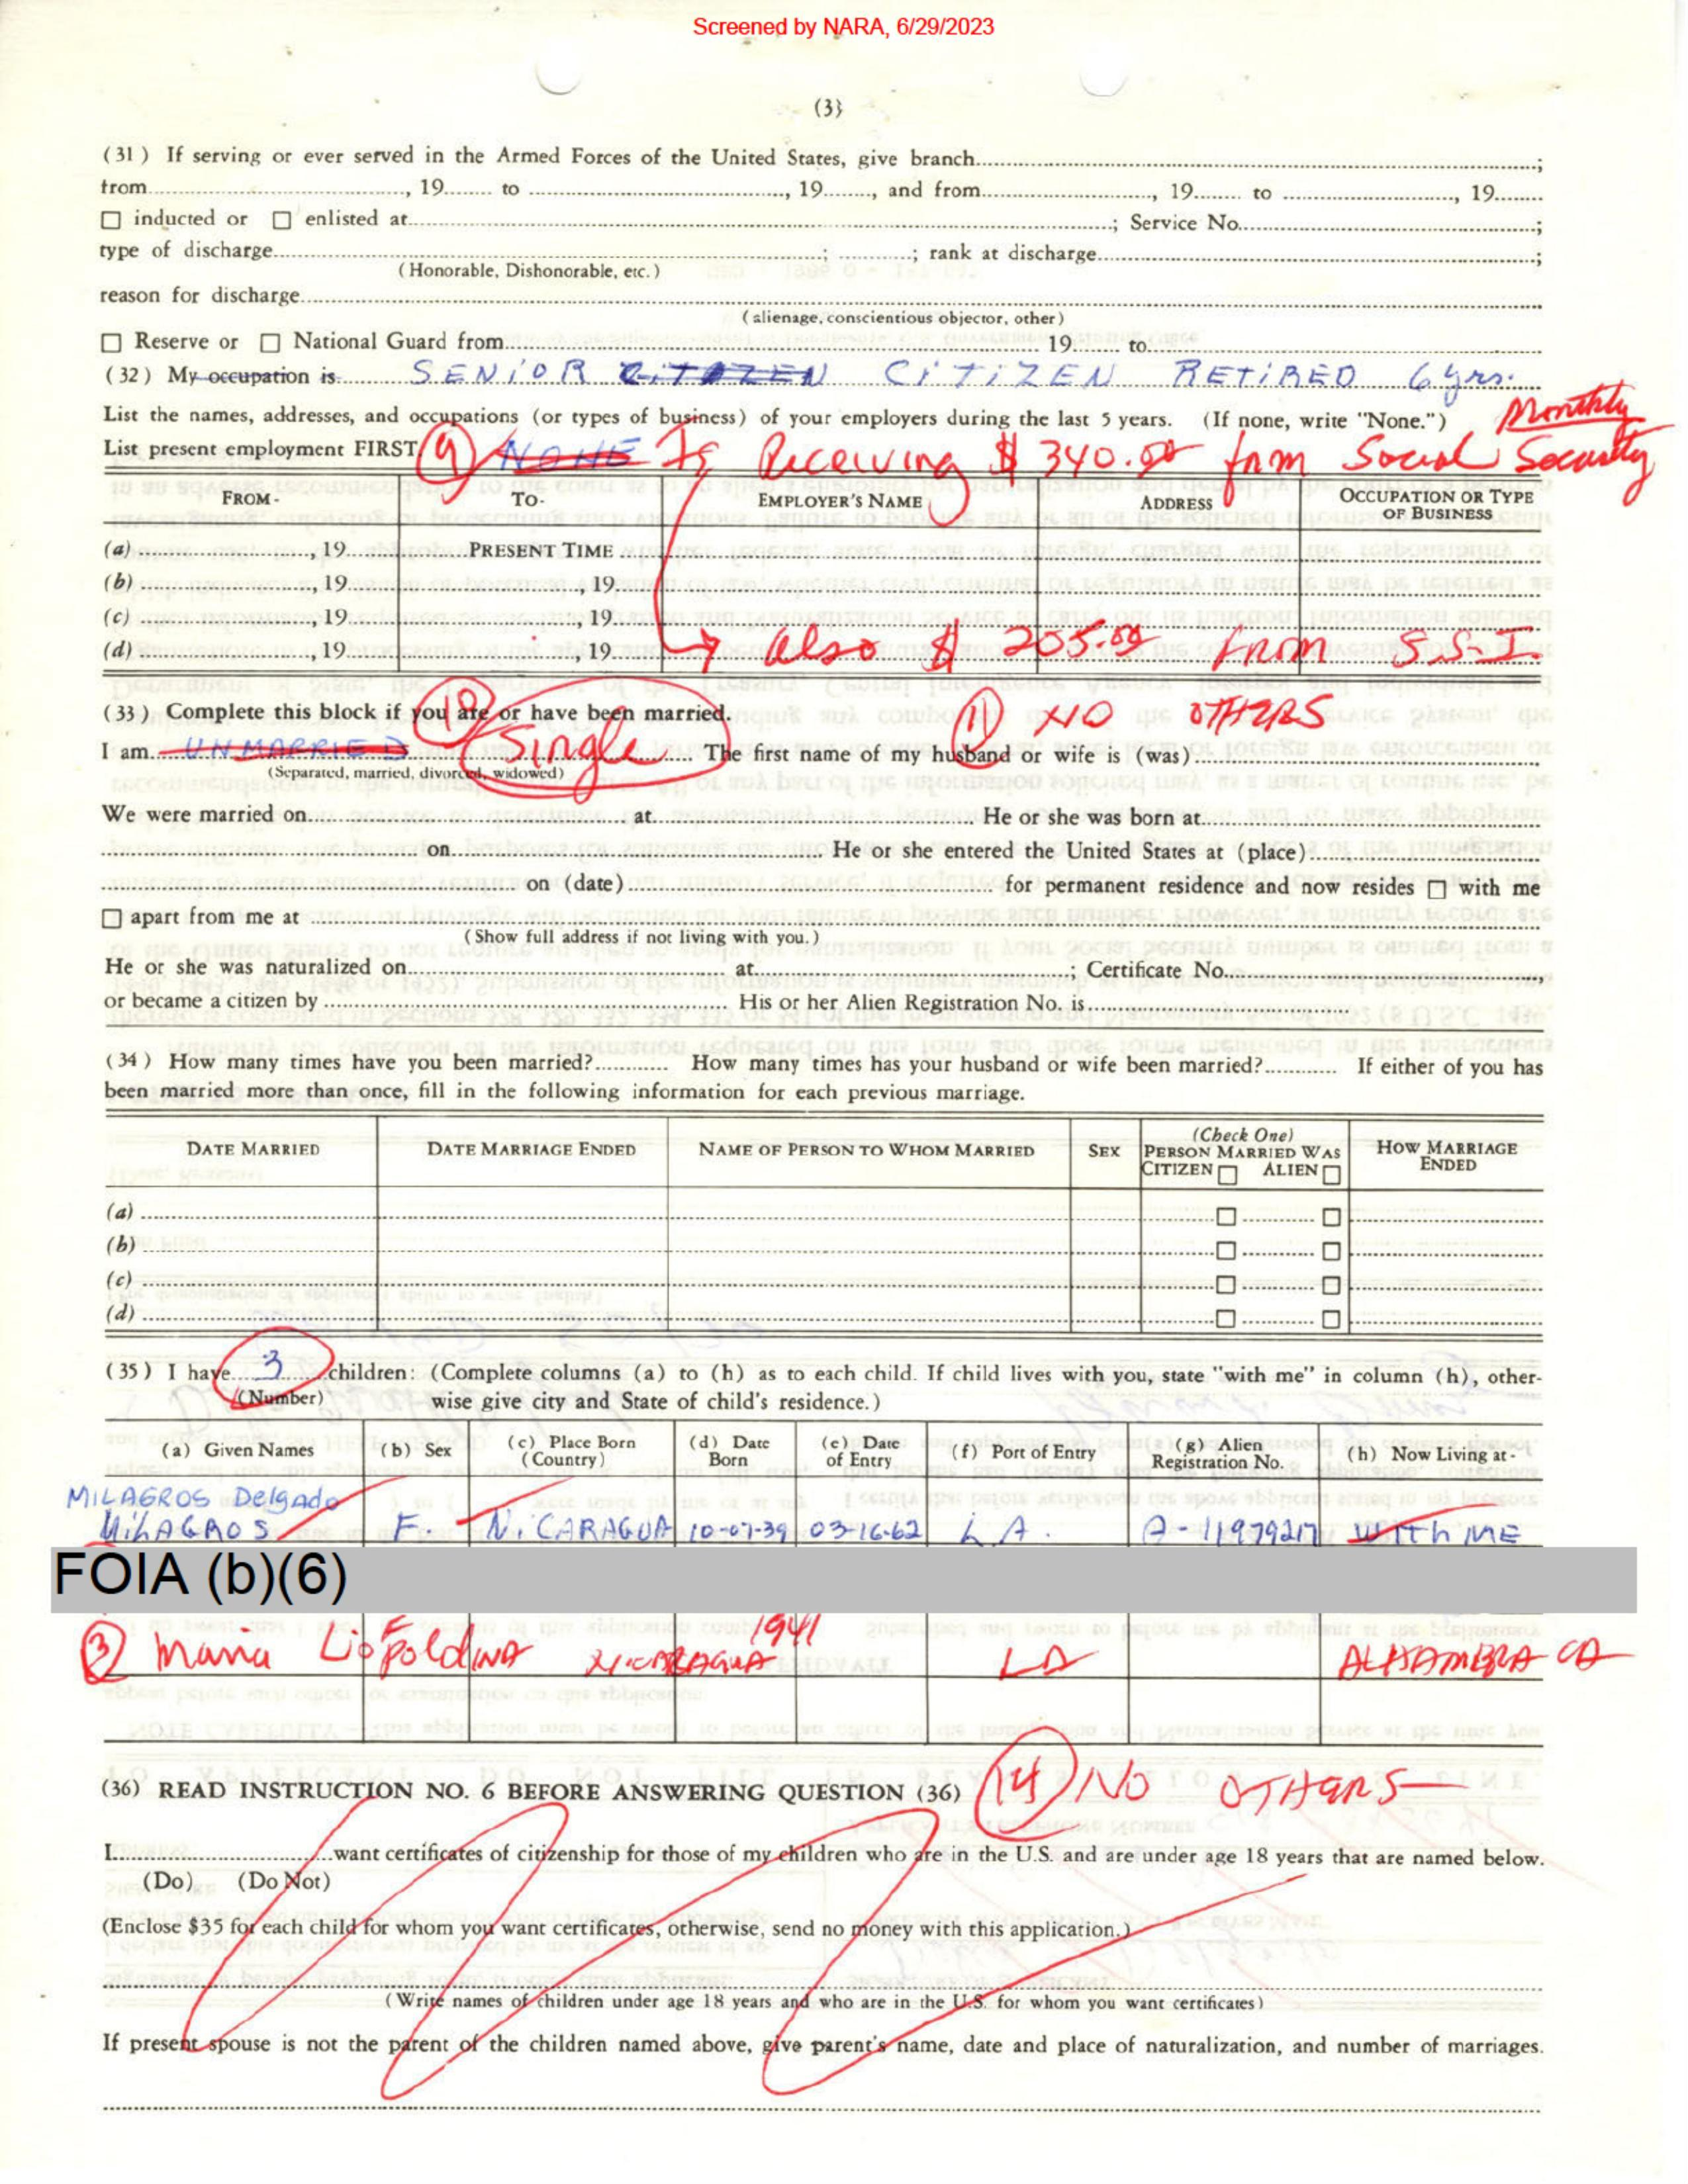 Screened by NARA, 6/29/2023
(3)
(31) If serving or ever served in the Armed Forces of the United States, give branch ;
from , 19 to , 19 , and from , 19 to , 19
☐ inducted or ☐ enlisted at ; Service No. ;
type of discharge ; ; rank at discharge ;
(Honorable, Dishonorable, etc.)
reason for discharge
(alienage, conscientious objector, other)
☐ Reserve or ☐ National Guard from 19 to
(32) My occupation is SENIOR CITIZEN CITIZEN RETIRED 6 yrs.
List the names, addresses, and occupations (or types of business) of your employers during the last 5 years. (If none, write "None.") Monthly
List present employment FIRST. 9 NONE Is Receiving $ 340.00 from Social Security
FROM - TO - EMPLOYER'S NAME ADDRESS OCCUPATION OR TYPE OF BUSINESS
(a) , 19 PRESENT TIME
(b) , 19 , 19
(c) , 19 , 19
(d) , 19 , 19 also $ 205.00 from S.S.I.
(33) Complete this block if you are or have been married. 10 11 NO OTHERS
I am UNMARRIED Single The first name of my husband or wife is (was)
(Separated, married, divorced, widowed)
We were married on at He or she was born at
on He or she entered the United States at (place)
on (date) for permanent residence and now resides ☐ with me
☐ apart from me at
(Show full address if not living with you.)
He or she was naturalized on at ; Certificate No.
or became a citizen by His or her Alien Registration No. is
(34) How many times have you been married? How many times has your husband or wife been married? If either of you has
been married more than once, fill in the following information for each previous marriage.
DATE MARRIED DATE MARRIAGE ENDED NAME OF PERSON TO WHOM MARRIED SEX (Check One) PERSON MARRIED WAS CITIZEN ☐ ALIEN ☐ HOW MARRIAGE ENDED
(a) ☐ ☐
(b) ☐ ☐
(c) ☐ ☐
(d) ☐ ☐
(35) I have 3 children: (Complete columns (a) to (h) as to each child. If child lives with you, state "with me" in column (h), other-
(Number) wise give city and State of child's residence.)
(a) Given Names (b) Sex (c) Place Born (Country) (d) Date Born (e) Date of Entry (f) Port of Entry (g) Alien Registration No. (h) Now Living at -
MILAGROS Delgado
MILAGROS F. NICARAGUA 10-07-39 03-16-62 L A. A-11979217 WITH ME
FOIA (b)(6)
3 Maria Liopoldina F NICARAGUA 1941 LA ALHAMBRA CA
(36) READ INSTRUCTION NO. 6 BEFORE ANSWERING QUESTION (36) 14 NO OTHERS
I want certificates of citizenship for those of my children who are in the U.S. and are under age 18 years that are named below.
(Do) (Do Not)
(Enclose $35 for each child for whom you want certificates, otherwise, send no money with this application.)
(Write names of children under age 18 years and who are in the U.S. for whom you want certificates)
If present spouse is not the parent of the children named above, give parent's name, date and place of naturalization, and number of marriages.